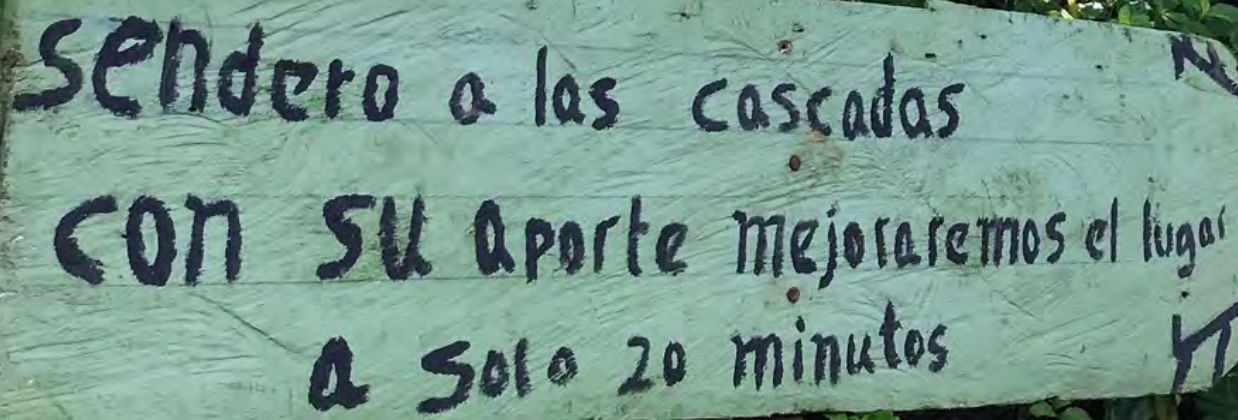 sendero a las cascadas
con su aporte mejoraremos el lugar
a solo 20 minutos